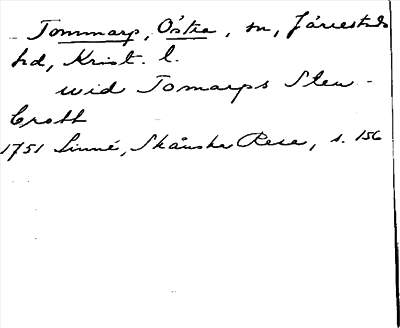 Tommarp, Östra, sn, Järrestads
hd, Krist. l.
wid Tomarps Sten-
brott
1751 Linné, Skånska Resa, s. 156